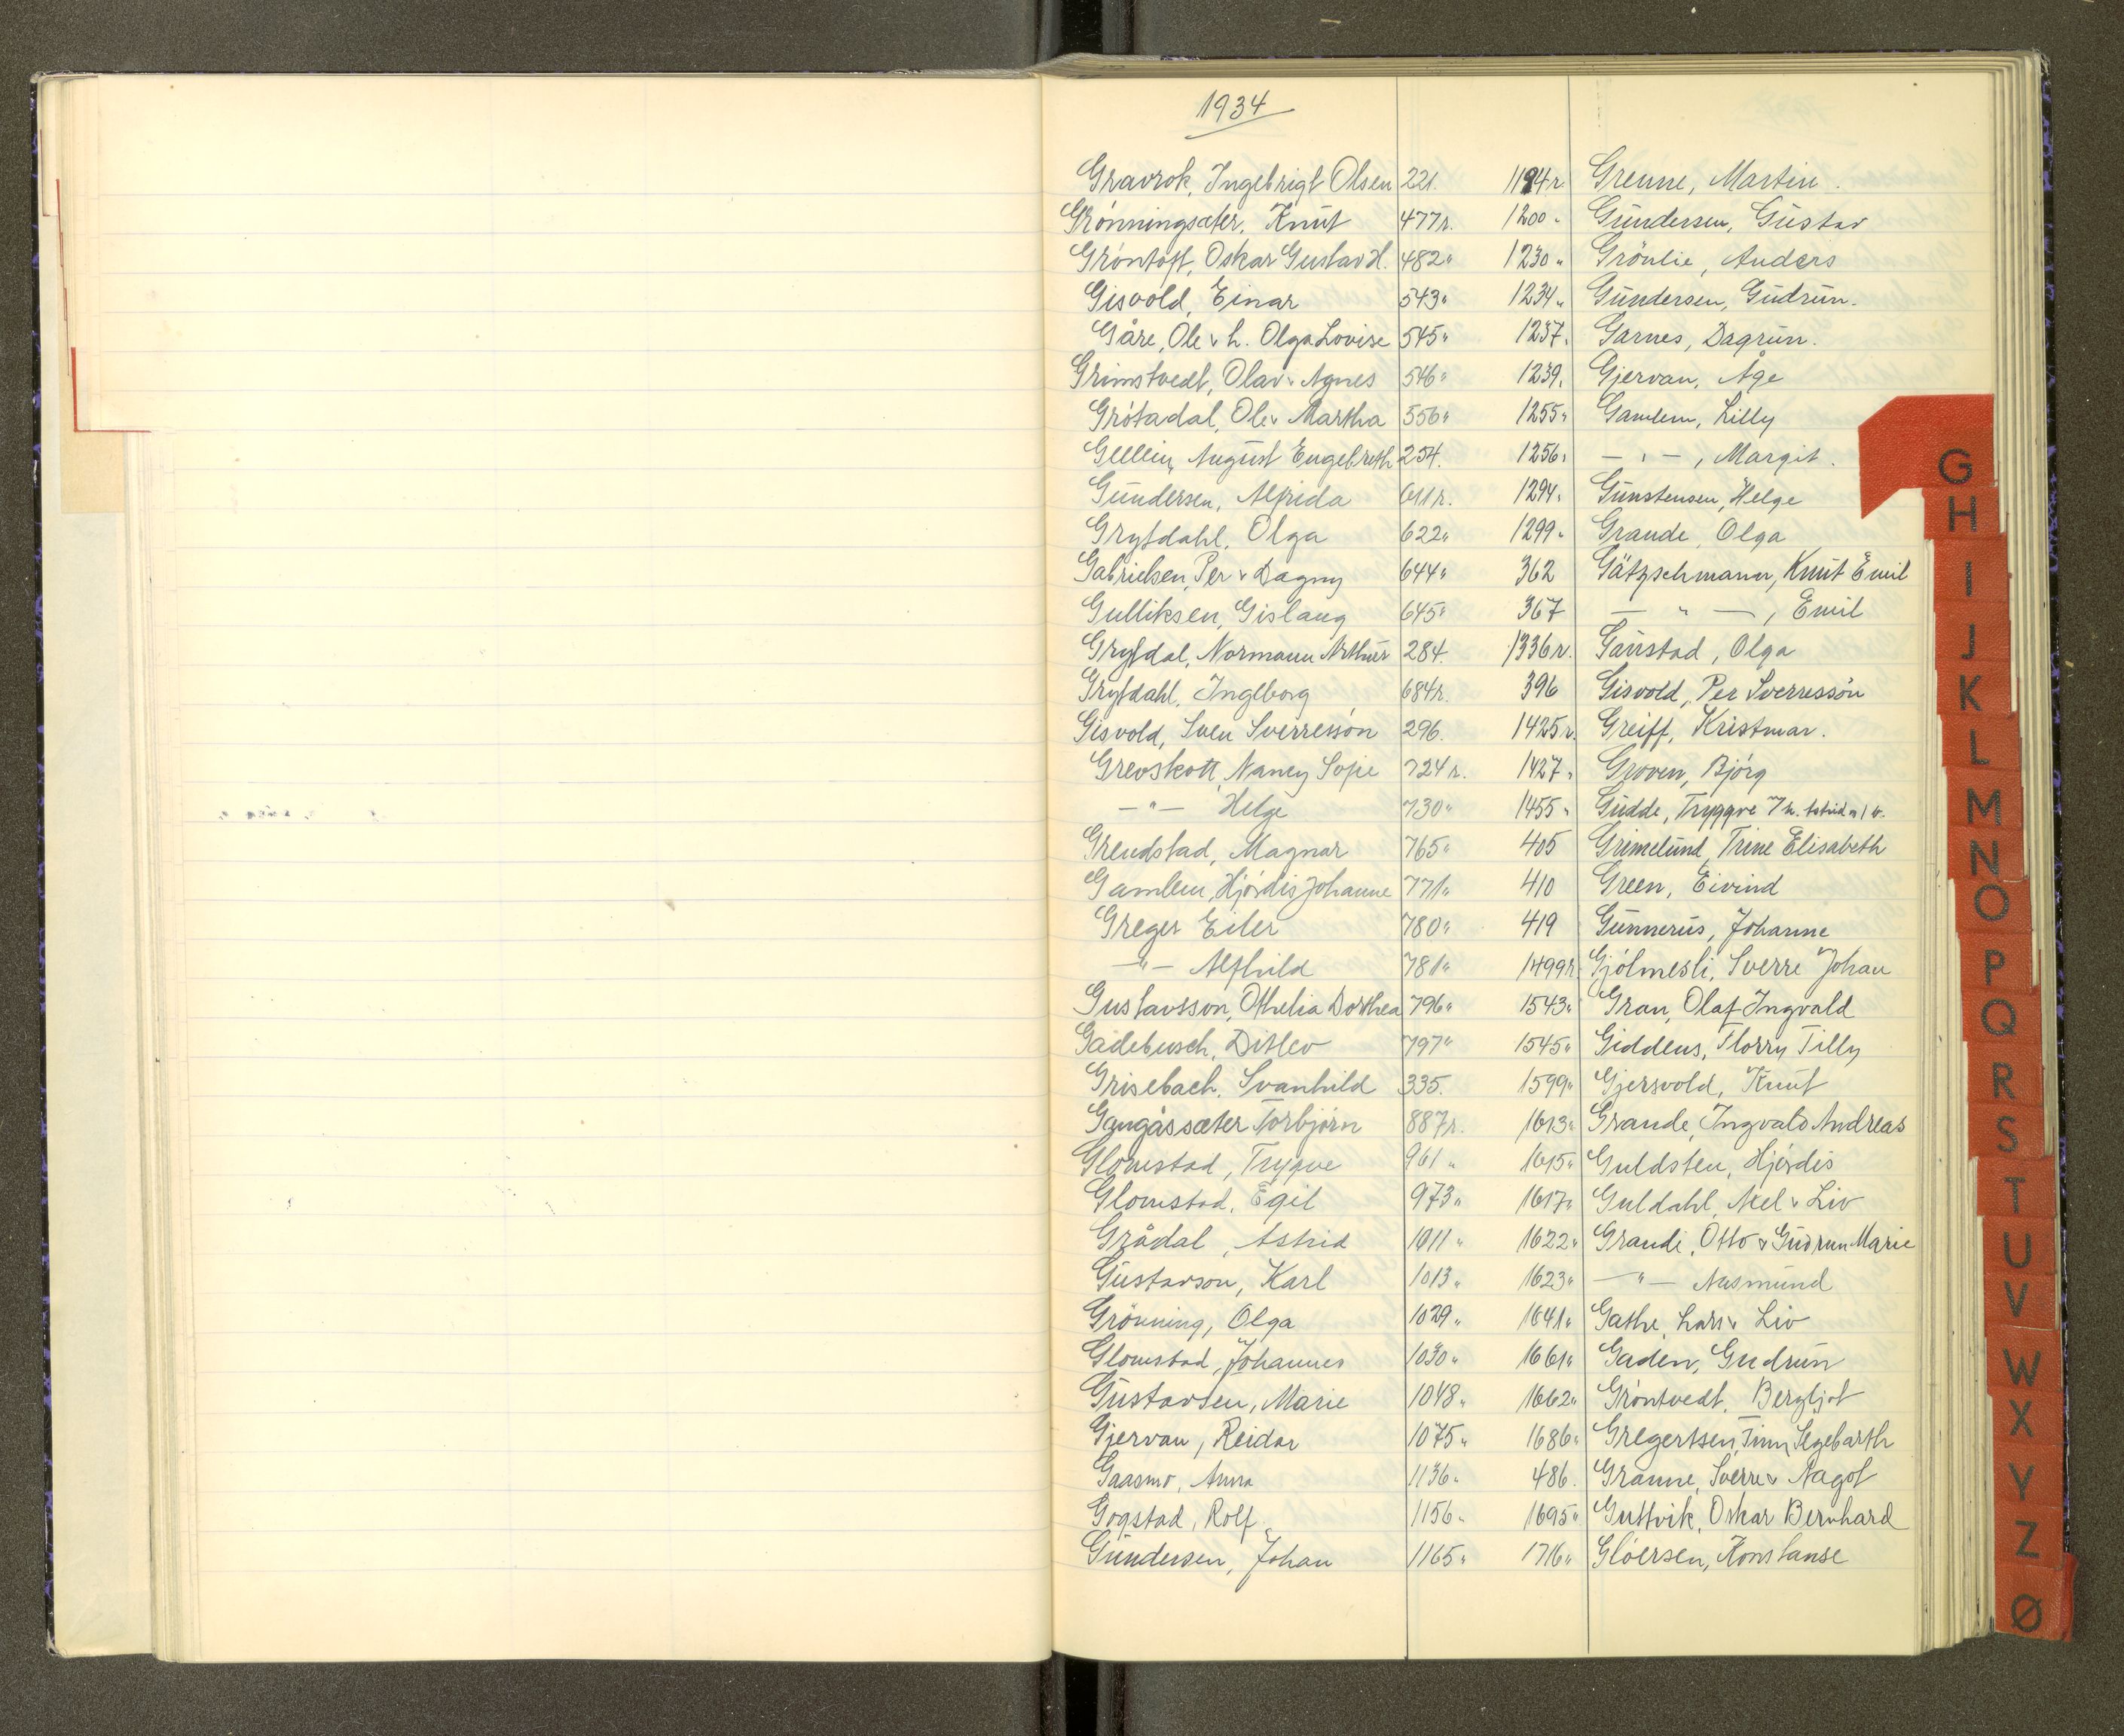 1934
Gravrok, Ingebrigt Olsen 221. 1194 r. Grenne, Martin.
Grönningsæter, Knut 477 r. 1200 " Gundersen, Gustav
Gröntoft, Oskar Gustav H. 482 " 1230 " Grönlie, Anders
Gisvold, Einar 543 " 1234 " Gundersen, Gudrun.
Gåre, Ole & h. Olga Lovise 545 " 1237 " Garnes, Dagrun.
Grimstvedt, Olav & Agnes 546 " 1239 " Gjervan, Åge
Grötadal, Ole & Martha 556 " 1255 " Gamlem, Lilly
Gulliin, August Engebreth 254. 1256 " — " — , Margit.
Gundersen, Alfrida 611 r. 1294 " Gunstensen, Helge
Grytdahl, Olga 622 " 1299 " Grande, Olga
Gabrielsen, Per & Dagny 644 " 362 Gätzschmann, Knut Emil
Gulliksen, Gislaug 645 " 367 — " — , Emil
Grytdal, Normann Arthur 284. 1336 r. Gaustad, Olga
Grytdahl, Ingeborg 684 r. 396 Gisvold, Per Sverressön
Gisvold, Sven Sverressön 296. 1425 r. Greiff, Kristmar.
Grevskott, Nancy Sofie 724 r. 1427 " Groven, Björg
— " — Helge 730 " 1455 " Gudde, Tryggve
Grendstad, Magnar 765 " 405 Grimelund, Trine Elisabeth
Gamlem, Hjördis Johanne 771 " 410 Green, Eivind
Greger Eiler 780 " 419 Gunnerus, Johanne
— " — Alfhild 781 " 1499 r. Gjölmesli, Sverre Johan
Gustavsson, Othelia Dorthea 796 " 1543 " Gran, Olaf Ingvald
Gadebusch, Ditlev 797 " 1545 " Giddens, Florry Tilly
Grisebach, Svanhild 335. 1599 " Gjersvold, Knut
Gangåssæter Torbjörn 887 r. 1613 " Grande, Ingvald Andreas
Glomstad, Trygve 961 " 1615 " Guldsten, Hjördis
Glomstad, Egil 973 " 1617 " Guldahl, Axel & Liv
Grådal, Astrid 1011 " 1622 " Grande, Otto & Gudrun Marie
Gustavson, Karl 1013 " 1623 " — " — Aasmund
Grönning, Olga 1029 " 1641 " Gathe, Lars & Liv
Glomstad, Johannes 1030 " 1661 " Gaden, Gudrun
Gustavsen, Marie 1048 " 1662 " Gröntvedt, Bergljot
Gjervan, Reidar 1075 " 1686 " Gregertsen, Finn Segebarth
Gaasmo, Anna 1136 " 486. Granne, Sverre & Nagot
Gogstad, Rolf 1156 " 1695 " Guttvik, Oskar Bernhard
Gundersen, Johan 1165 " 1716 " Glöersen, Konstanse
G
H
I
J
K
L
M
N
O
P
Q
R
S
T
U
V
W
X
Y
Z
Ø